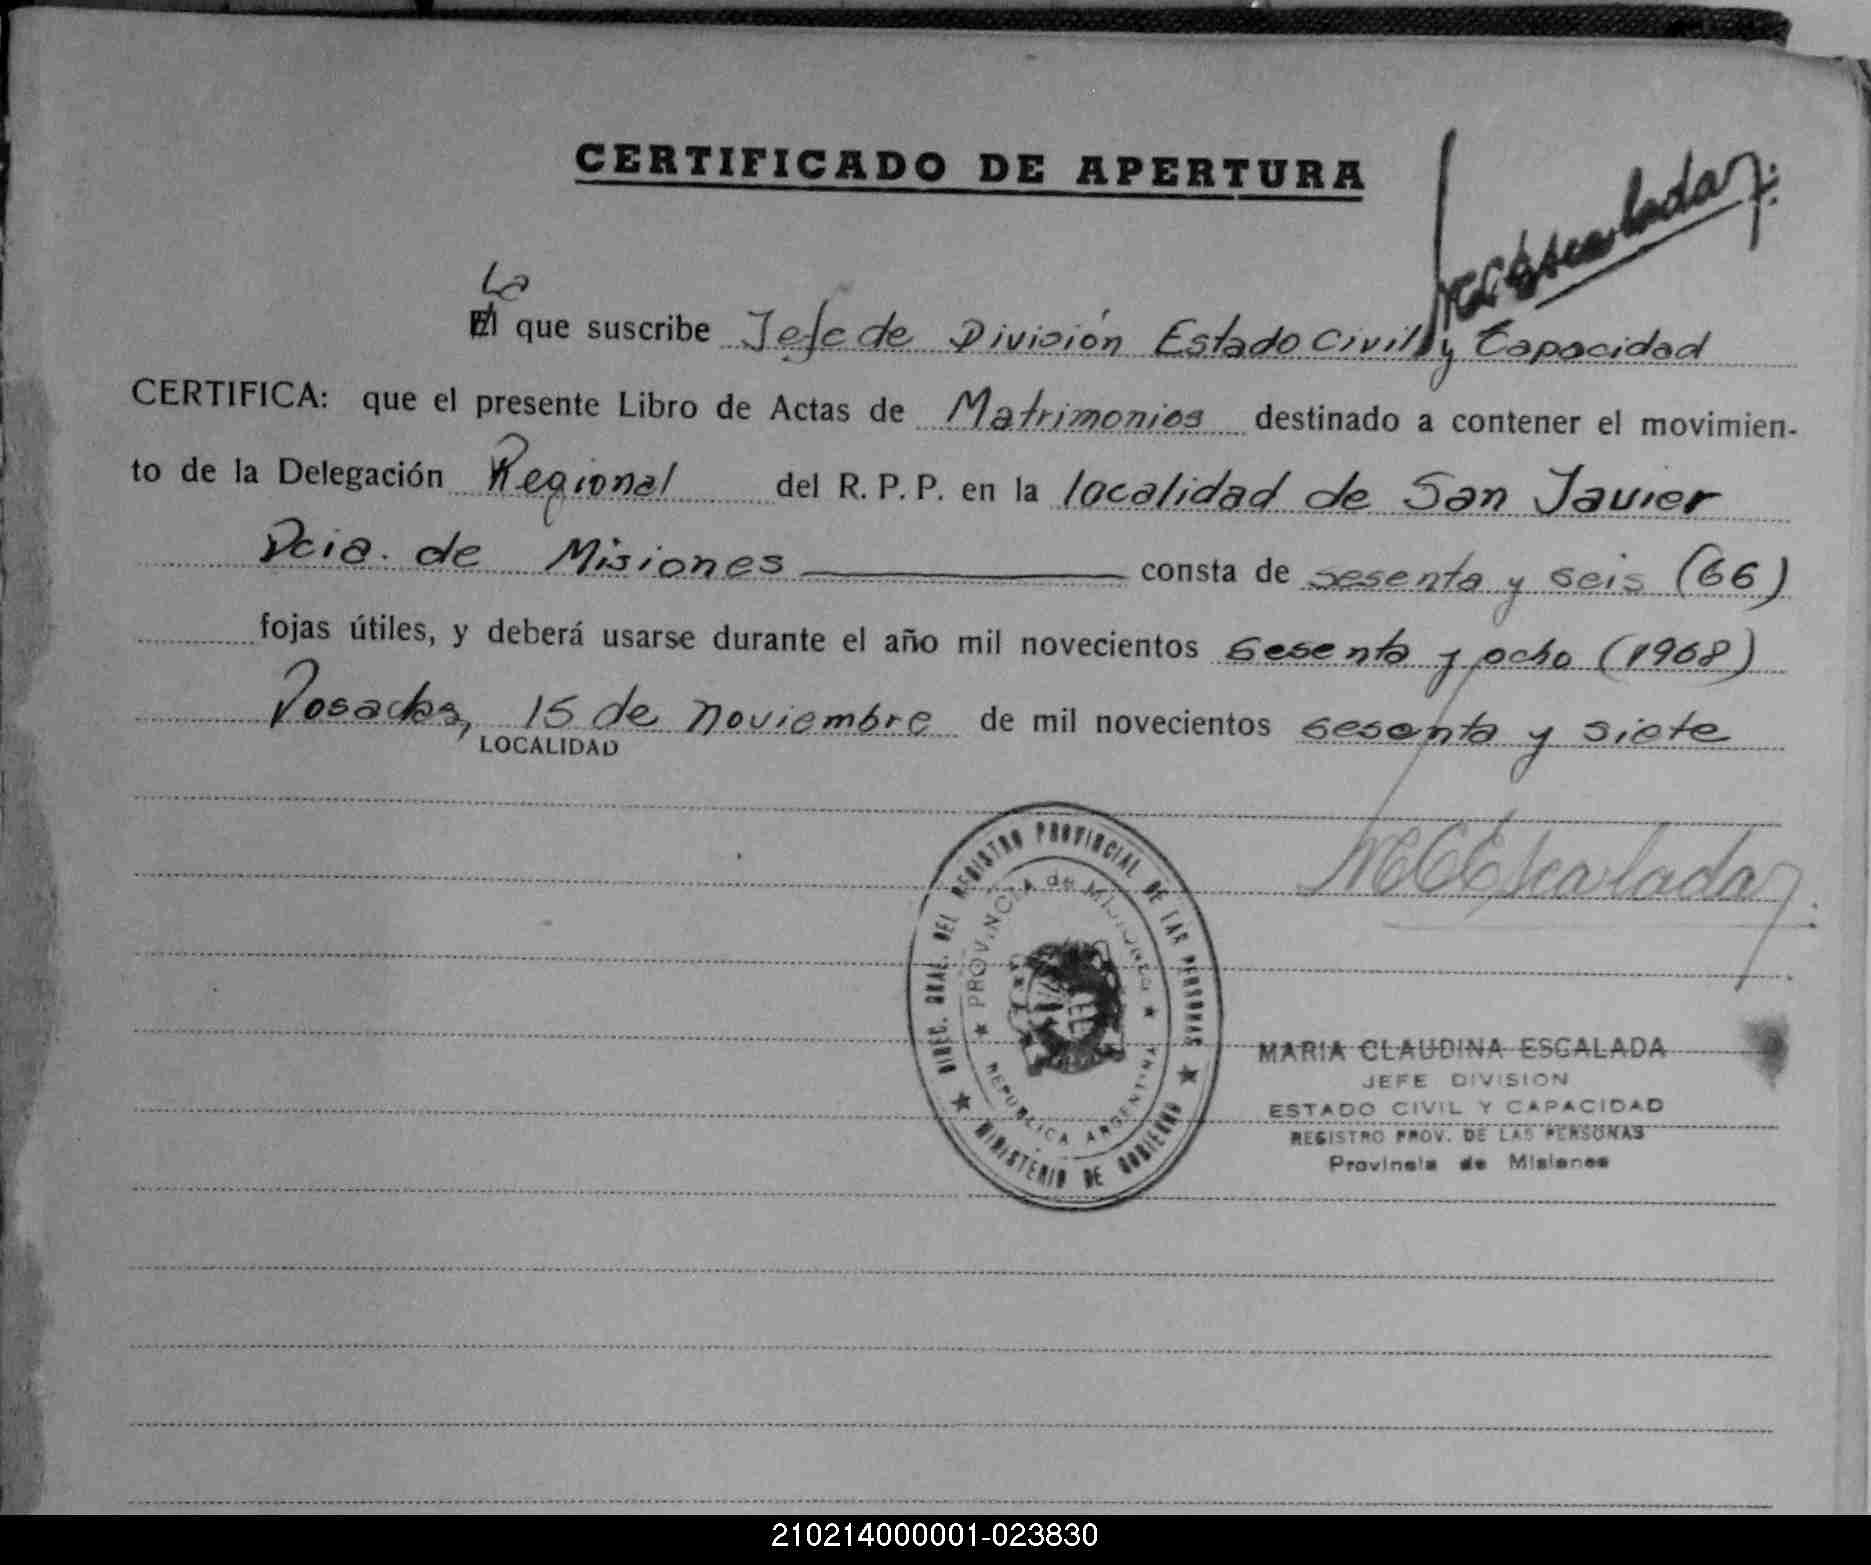 CERTIFICADO DE APERTURA
MCEscalada
La
El que suscribe Jefe de División Estado Civil y Capacidad
CERTIFICA: que el presente Libro de Actas de Matrimonios destinado a contener el movimien-
to de la Delegación Regional del R. P. P. en la localidad de San Javier
Pcia. de Misiones consta de sesenta y seis (66)
fojas útiles, y deberá usarse durante el año mil novecientos sesenta y ocho (1968)
Posadas, 15 de noviembre de mil novecientos sesenta y siete
LOCALIDAD
MCEscalada
DIREC. GRAL. DEL REGISTRO PROVINCIAL DE LAS PERSONAS
PROVINCIA de MISIONES
REPUBLICA ARGENTINA
MINISTERIO DE GOBIERNO
MARIA CLAUDINA ESCALADA
JEFE DIVISION
ESTADO CIVIL Y CAPACIDAD
REGISTRO PROV. DE LAS PERSONAS
Provincia de Misiones
210214000001-023830